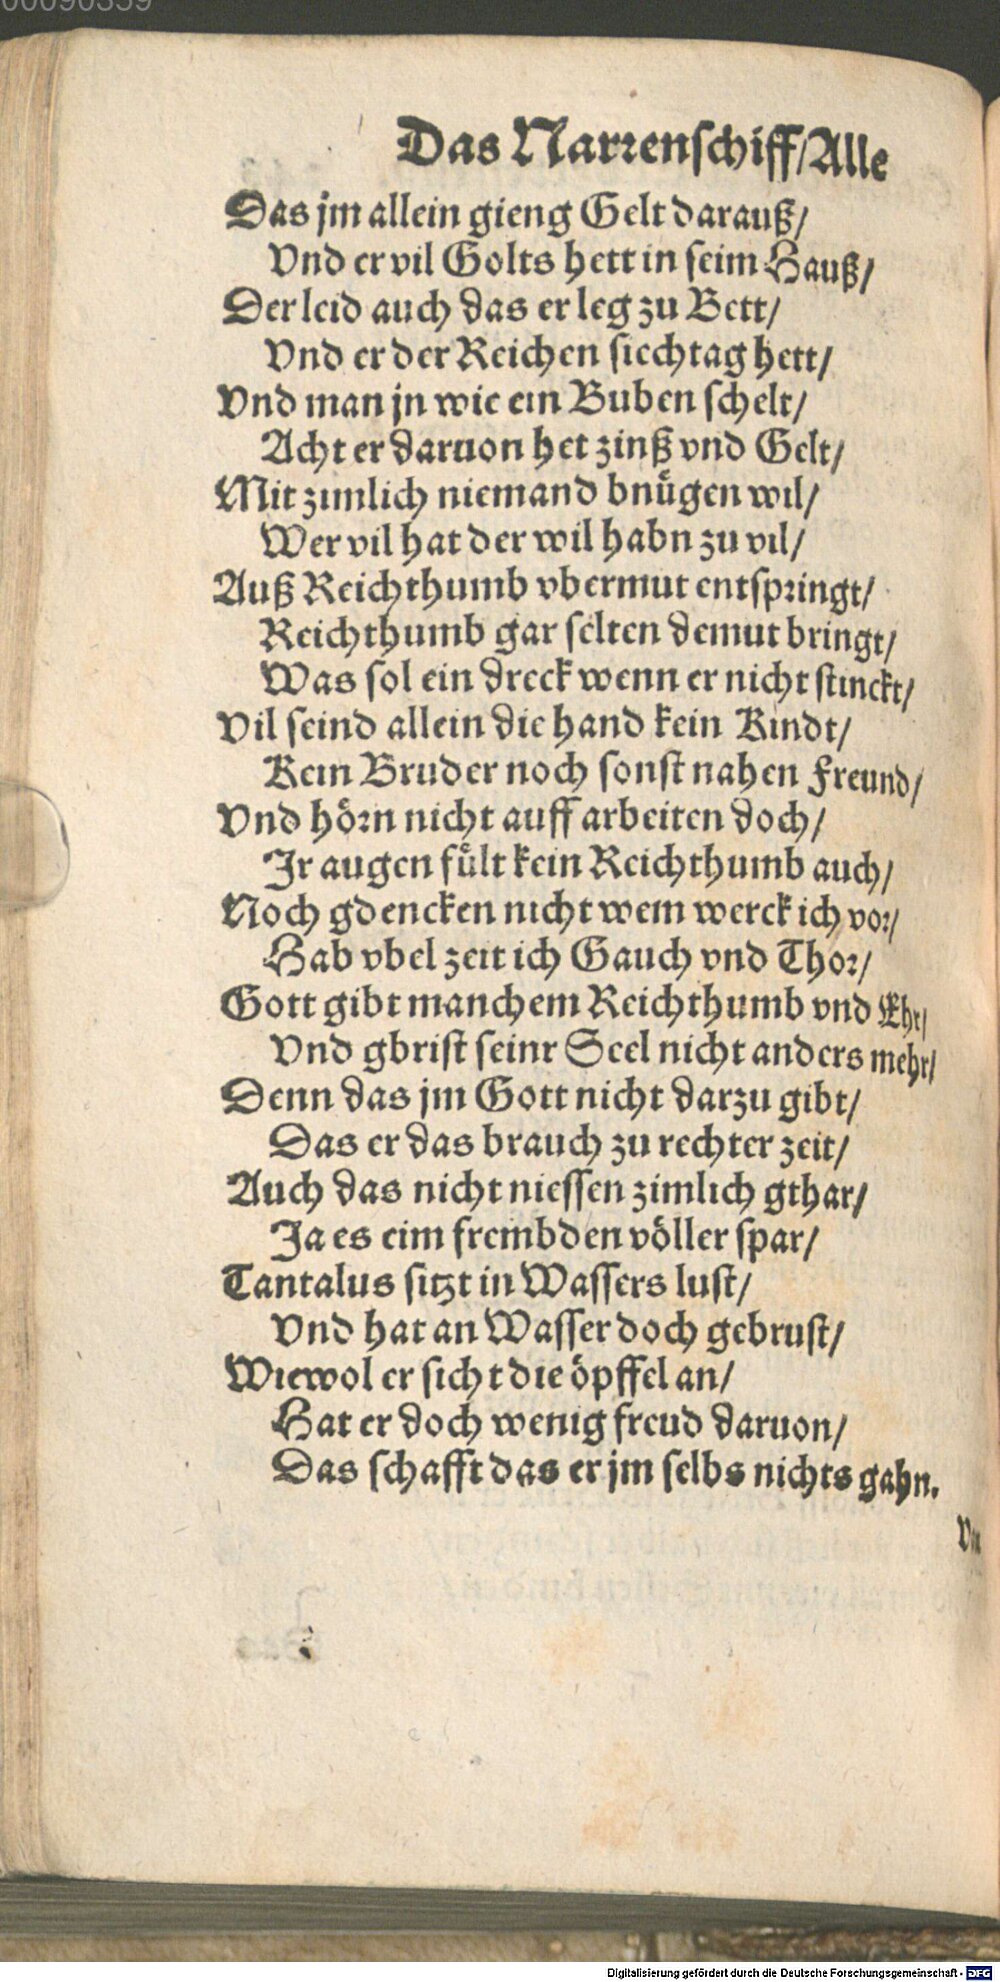 00090359
Das Narrenschiff/Alle
Das jm allein gieng Gelt darauß/
Vnd er vil Golts hett in seim Hauß/
Der leid auch das er leg zu Bett/
Vnd er der Reichen siechtag hett/
Vnd man jn wie ein Buben schelt/
Acht er daruon het zinß vnd Gelt/
Mit zimlich niemand bnügen wil/
Wer vil hat der wil habn zu vil/
Auß Reichthumb vbermut entspringt/
Reichthumb gar selten demut bringt/
Was sol ein dreck wenn er nicht stinckt/
Vil seind allein die hand kein Kindt/
Kein Bruder noch sonst nahen Freund/
Vnd hörn nicht auff arbeiten doch/
Jr augen fült kein Reichthumb auch/
Noch gdencken nicht wem werck ich vor/
Hab vbel zeit ich Gauch vnd Thor/
Gott gibt manchem Reichthumb vnd Ehr/
Vnd gbrist seinr Seel nicht anders mehr/
Denn das jm Gott nicht darzu gibt/
Das er das brauch zu rechter zeit/
Auch das nicht niessen zimlich gthar/
Ja es eim frembden völler spar/
Tantalus sitzt in Wassers lust/
Vnd hat an Wasser doch gebrust/
Wiewol er sicht die öpffel an/
Hat er doch wenig freud daruon/
Das schafft das er jm selbs nichts gahn.
Digitalisierung gefördert durch die Deutsche Forschungsgemeinschaft - DFG